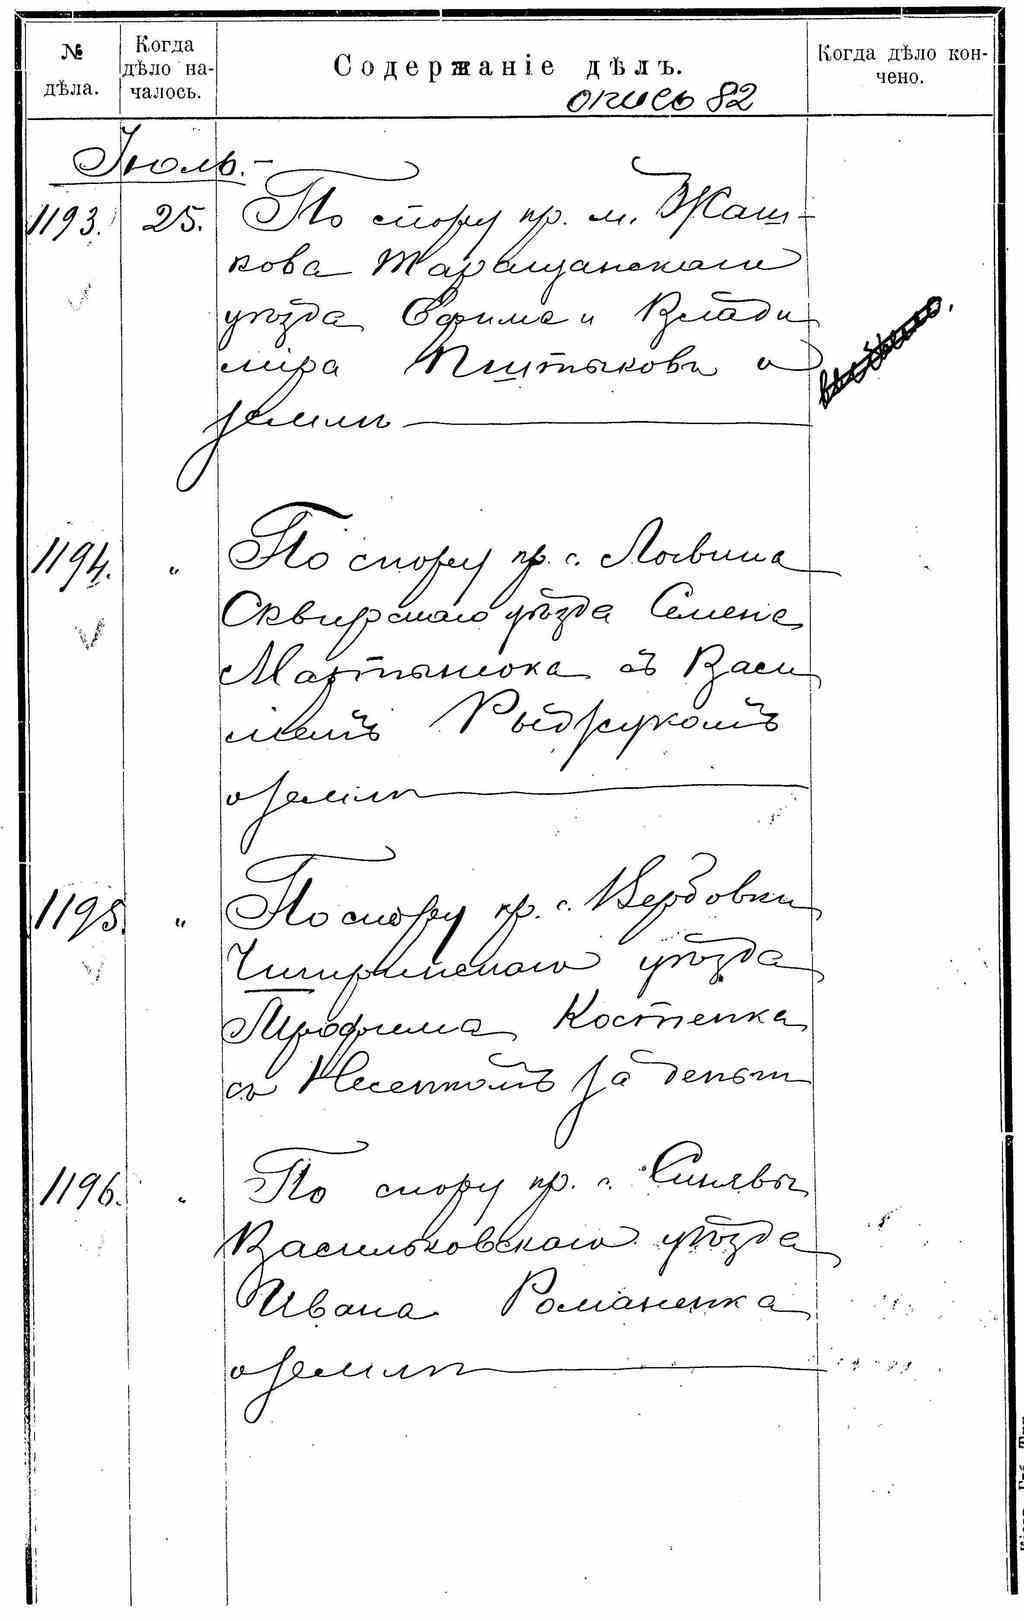 № дѣла.
Когда дѣло началось.
Содержаніе дѣлъ.
Когда дѣло кончено.
опись 82
Іюль.-
1193. 25. По спору пр. м. Жаш-
кова Таращанскаго
уѣзда Ефима и Влади
міра Пштыковъ о
землѣ
1194. " По спору пр. с. Логвина
Сквирскаго уѣзда Семена
Мартынюка съ Васи
лемъ
о землѣ
1195. " По спору пр. с. Вербовки
Чигиринскаго уѣзда
Трофима Костенка
съ Несенкомъ за деньги
1196. " По спору пр. с. Синявы
Васильковскаго уѣзда
Ивана Романенка
о землѣ